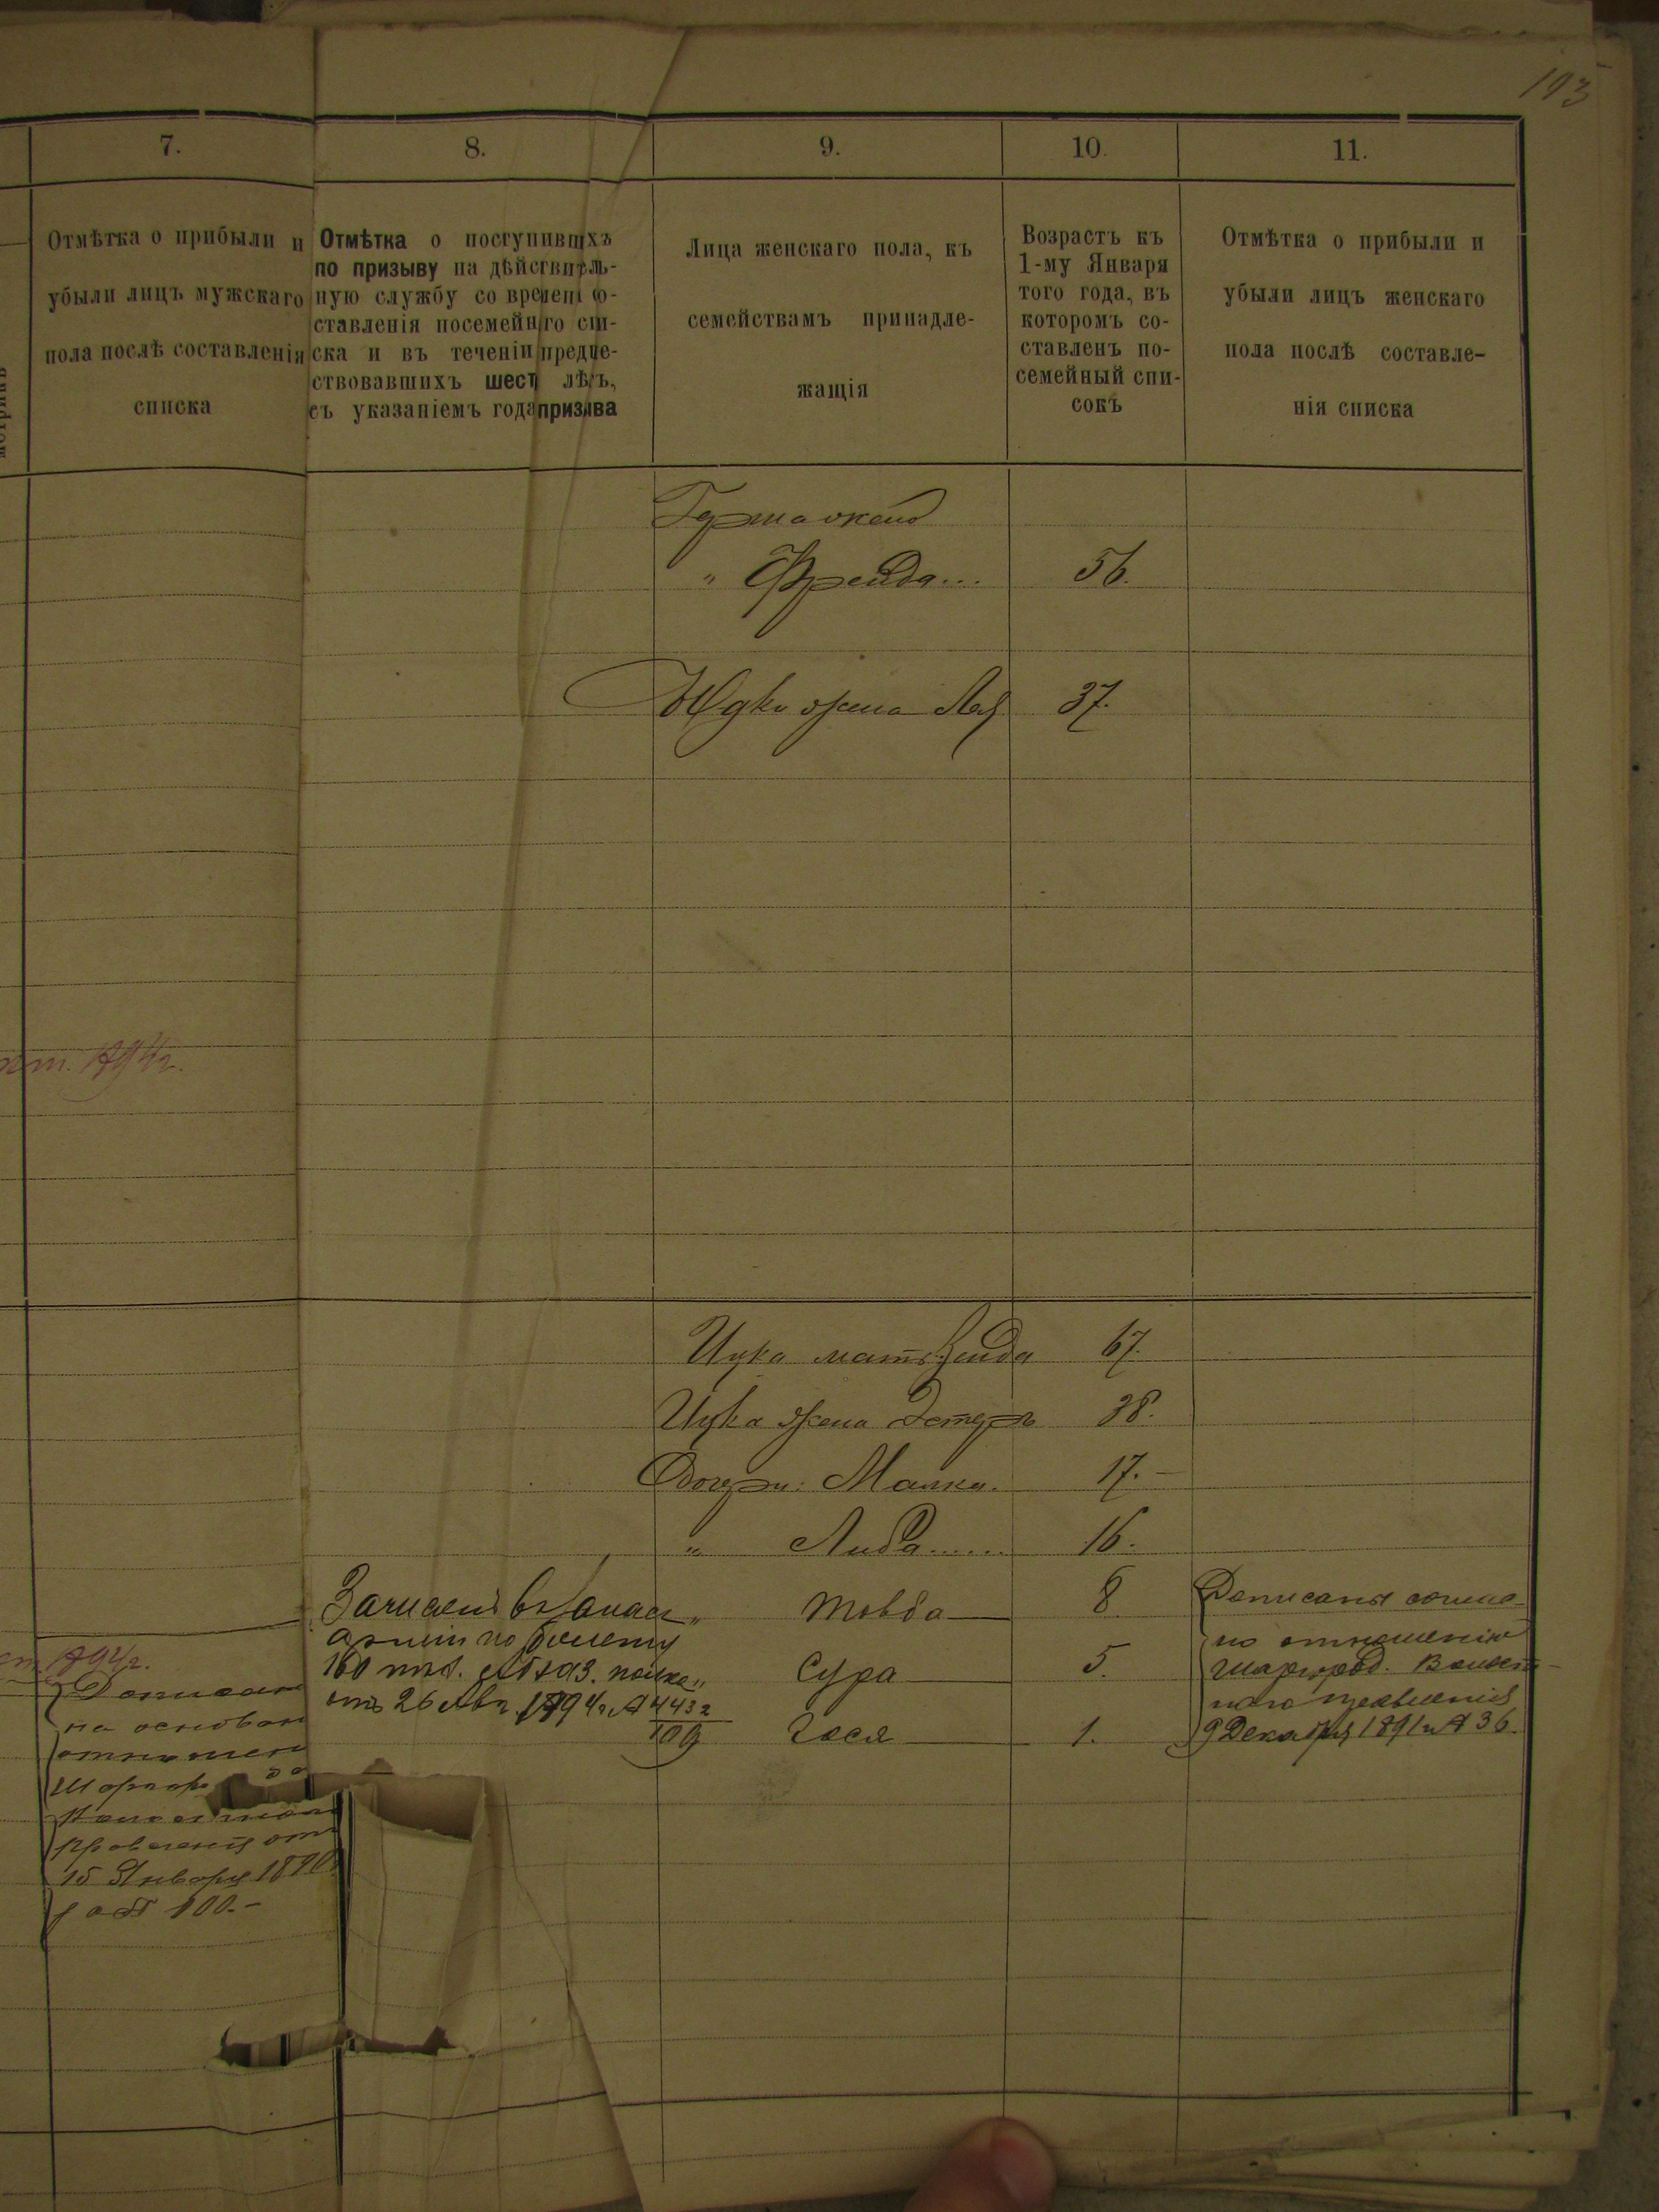 193
7.
8.
9.
10.
11.
Отмѣтка о прибыли и
убыли лицъ мужскаго
пола послѣ составленія
списка
Отмѣтка о поступившихъ
по призыву на дѣйствитель-
ную службу со времени со-
ставленія посемейнаго спи-
ска и въ теченіи предше-
ствовавшихъ шести лѣтъ,
съ указаніемъ года призыва
Лица женскаго пола, къ
семействамъ принадле-
жащія
Возрастъ къ
1-му Января
того года, въ
которомъ со-
ставленъ по-
семейный спи-
сокъ
Отмѣтка о прибыли и
убыли лицъ женскаго
пола послѣ составле-
нія списка
" Фрейда... 56.
жена Лея 37.
Ицка мать 67.
Ицка жена Эстеръ 38.
Дочери: Малка. 17.-
" Либа...... 16.
" Товба 8
Сура 5.
Гося 1.
Зачисленъ въ запасъ
арміи по билету
160 пѣх. Абхаз. полка
отъ 26 Авг. 1894 г. № 4432
109
Дописаны согла-
но отношенію
Шаргород.
наго правленія
9 Декабря 1891 г. № 36.
Дописан
на основан
отношен
15 Января 1890
за № 100.-